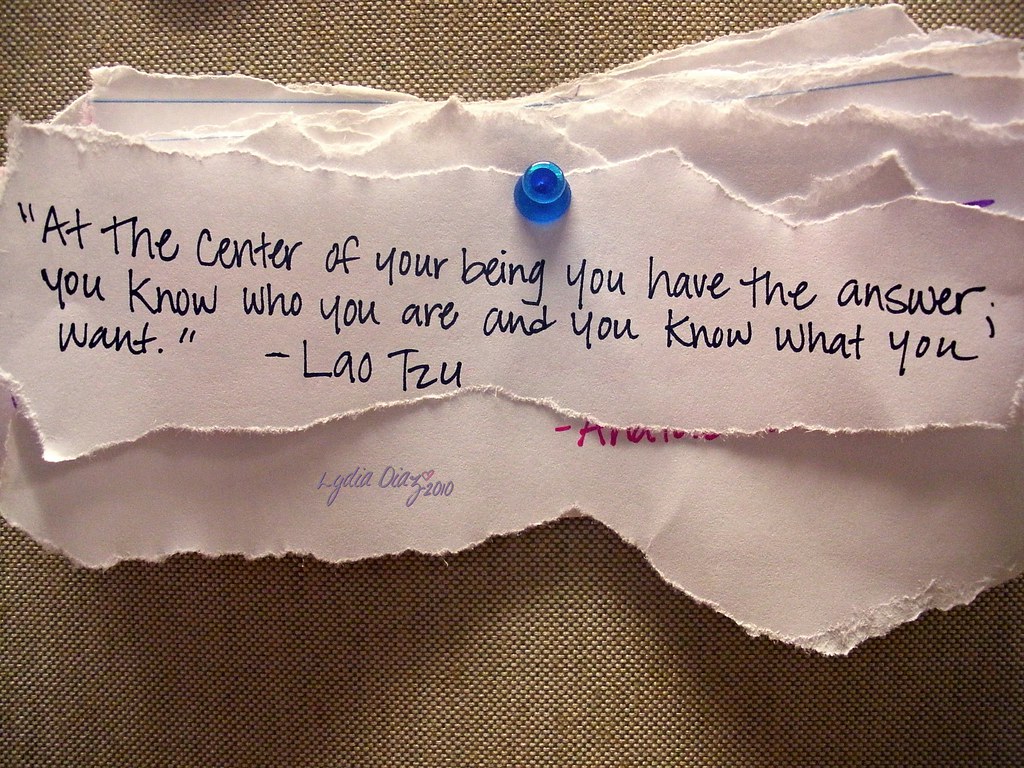 "At the center of your being you have the answer;
you know who you are and you know what you
want."
-Lao Tzu
Lydia Diaz 2010